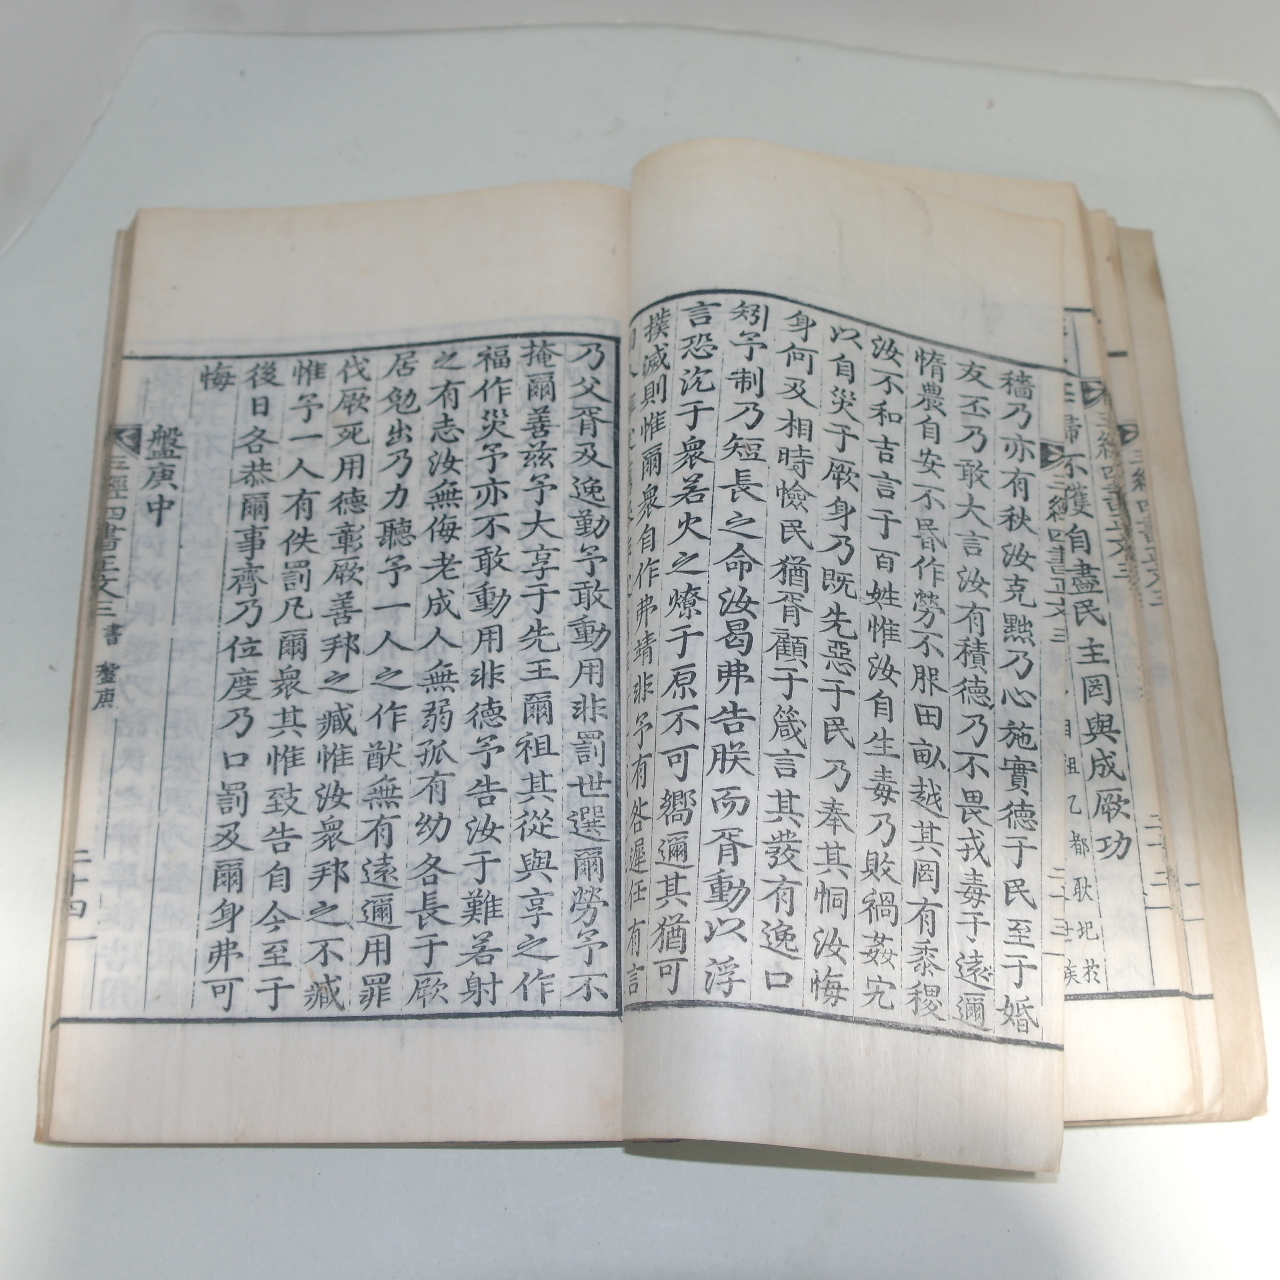 穡乃亦有秋汝克黜乃心施實德于民至于婚
友丕乃敢大言汝有積德乃不畏戎毒于遠邇
惰農自安不昬作勞不服田畝越其罔有黍稷
汝不和吉言于百姓惟汝自生毒乃敗禍姦宄
以自災于厥身乃既先惡于民乃奉其恫汝悔
身何及相時憸民猶胥顧于箴言其發有逸口
矧予制乃短長之命汝曷弗告朕而胥動以浮
言恐沈于衆若火之燎于原不可嚮邇其猶可
撲滅則惟爾衆自作弗靖非予有咎遲任有言
乃父胥及逸勤予敢動用非罰世選爾勞予不
掩爾善茲予大享于先王爾祖其從與享之作
福作災予亦不敢動用非德予告汝于難若射
之有志汝無侮老成人無弱孤有幼各長于厥
居勉出乃力聽予一人之作猷無有遠邇用罪
伐厥死用德彰厥善邦之臧惟汝衆邦之不臧
惟予一人有佚罰凡爾衆其惟致告自今至于
後日各恭爾事齊乃位度乃口罰及爾身弗可
悔
盤庚中
三經四書正文三 書 盤庚 二十四
不獲自盡民主罔與成厥功
三經四書正文三